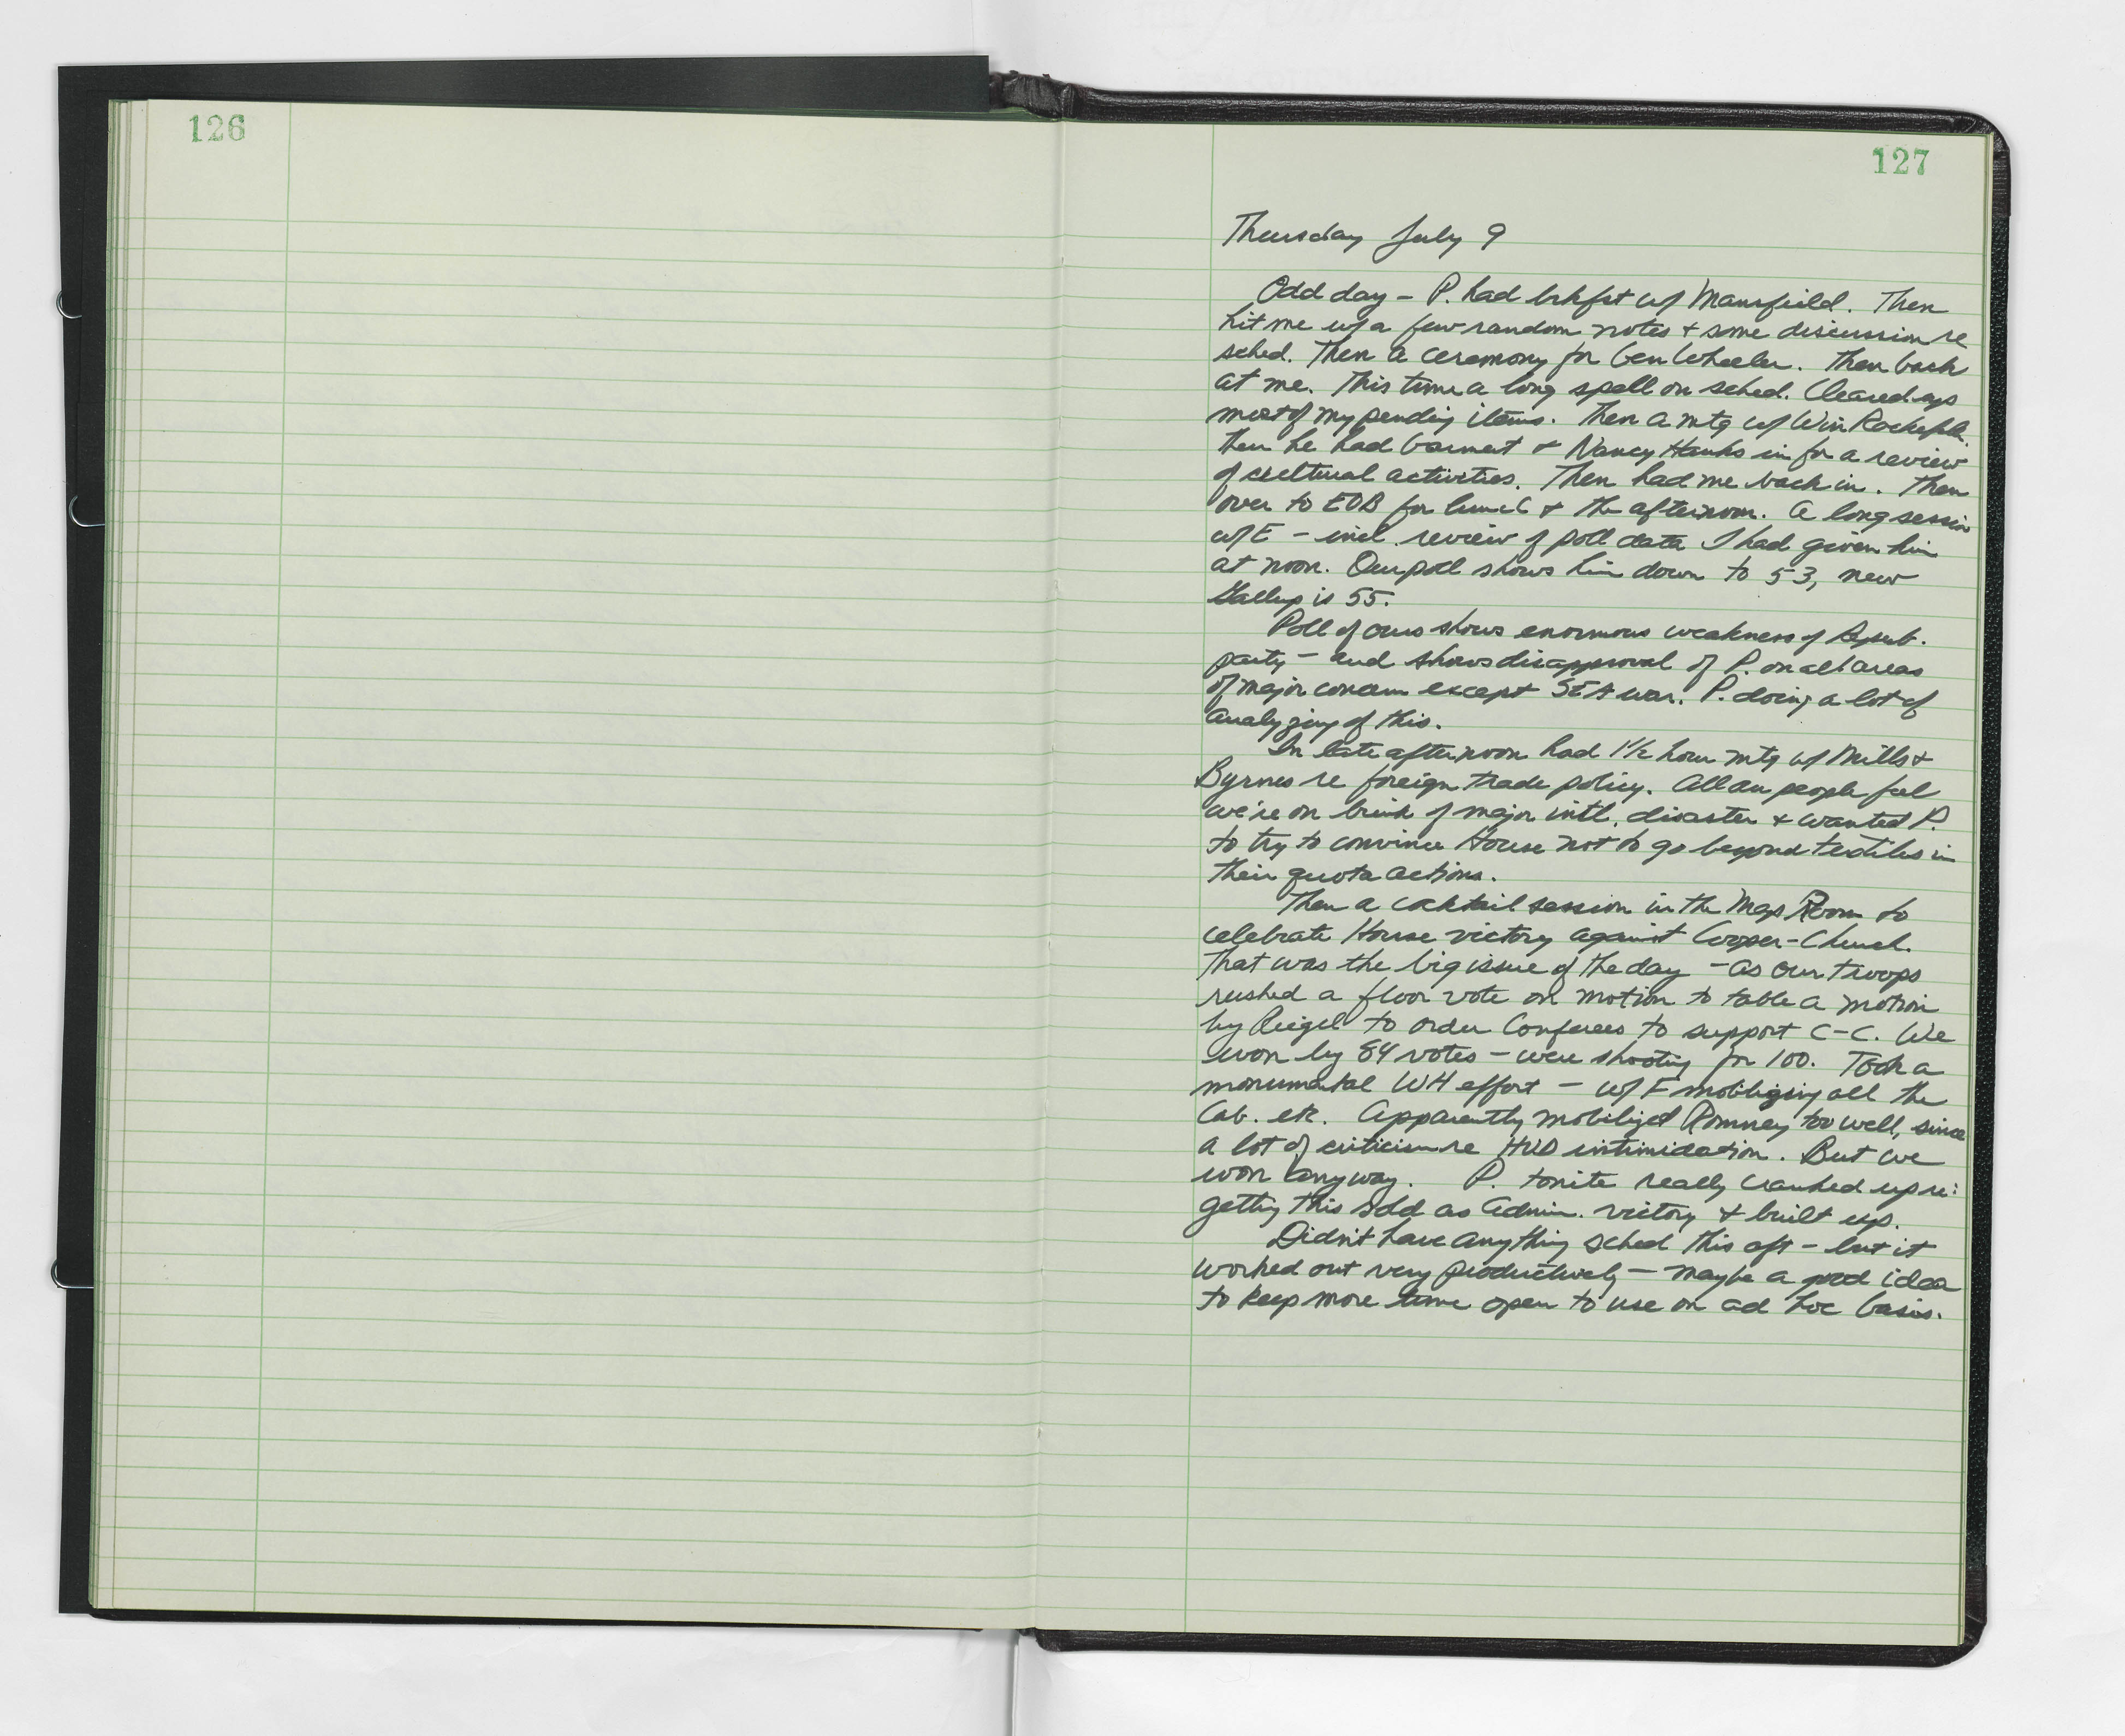 126
127
Thursday July 9
Odd day - P. had brkfst w/ Mansfield. Then
hit me w/ a few random notes + some discussion re
sched. Then a ceremony for Gen Wheeler. Then back
at me. This time a long spell on sched. Cleared up
most of my pending items. Then a mtg w/ Win Rockefeller.
Then he had Garment + Nancy Hanks in for a review
of cultural activities. Then had me back in. Then
over to EOB for lunch + the afternoon. A long session
w/ E - incl. review of poll data I had given him
at noon. Our poll shows him down to 53, new
Gallup is 55.
Poll of ours shows enormous weakness of Repub.
party - and shows disapproval of P. on all areas
of major concern except SEA war. P. doing a lot of
analyzing of this.
In late afternoon had 1½ hour mtg w/ Mills +
Byrnes re foreign trade policy. All our people feel
we're on brink of major intl. disaster + wanted P.
to try to convince House not to go beyond textiles in
their quota actions.
Then a cocktail session in the Map Room to
celebrate House victory against Cooper-Church.
That was the big issue of the day - as our troops
rushed a floor vote on motion to table a motion
by Riegel to order Conferees to support C-C. We
won by 84 votes - were shooting for 100. Took a
monumental WH effort - w/ E mobilizing all the
Cab. etc. Apparently mobilized Romney too well, since
a lot of criticism re HUD intimidation. But we
won anyway. P. tonite really cranked up re:
getting this sold as Admin. victory + built up.
Didn't have anything sched this aft - but it
worked out very productively - maybe a good idea
to keep more time open to use on ad hoc basis.